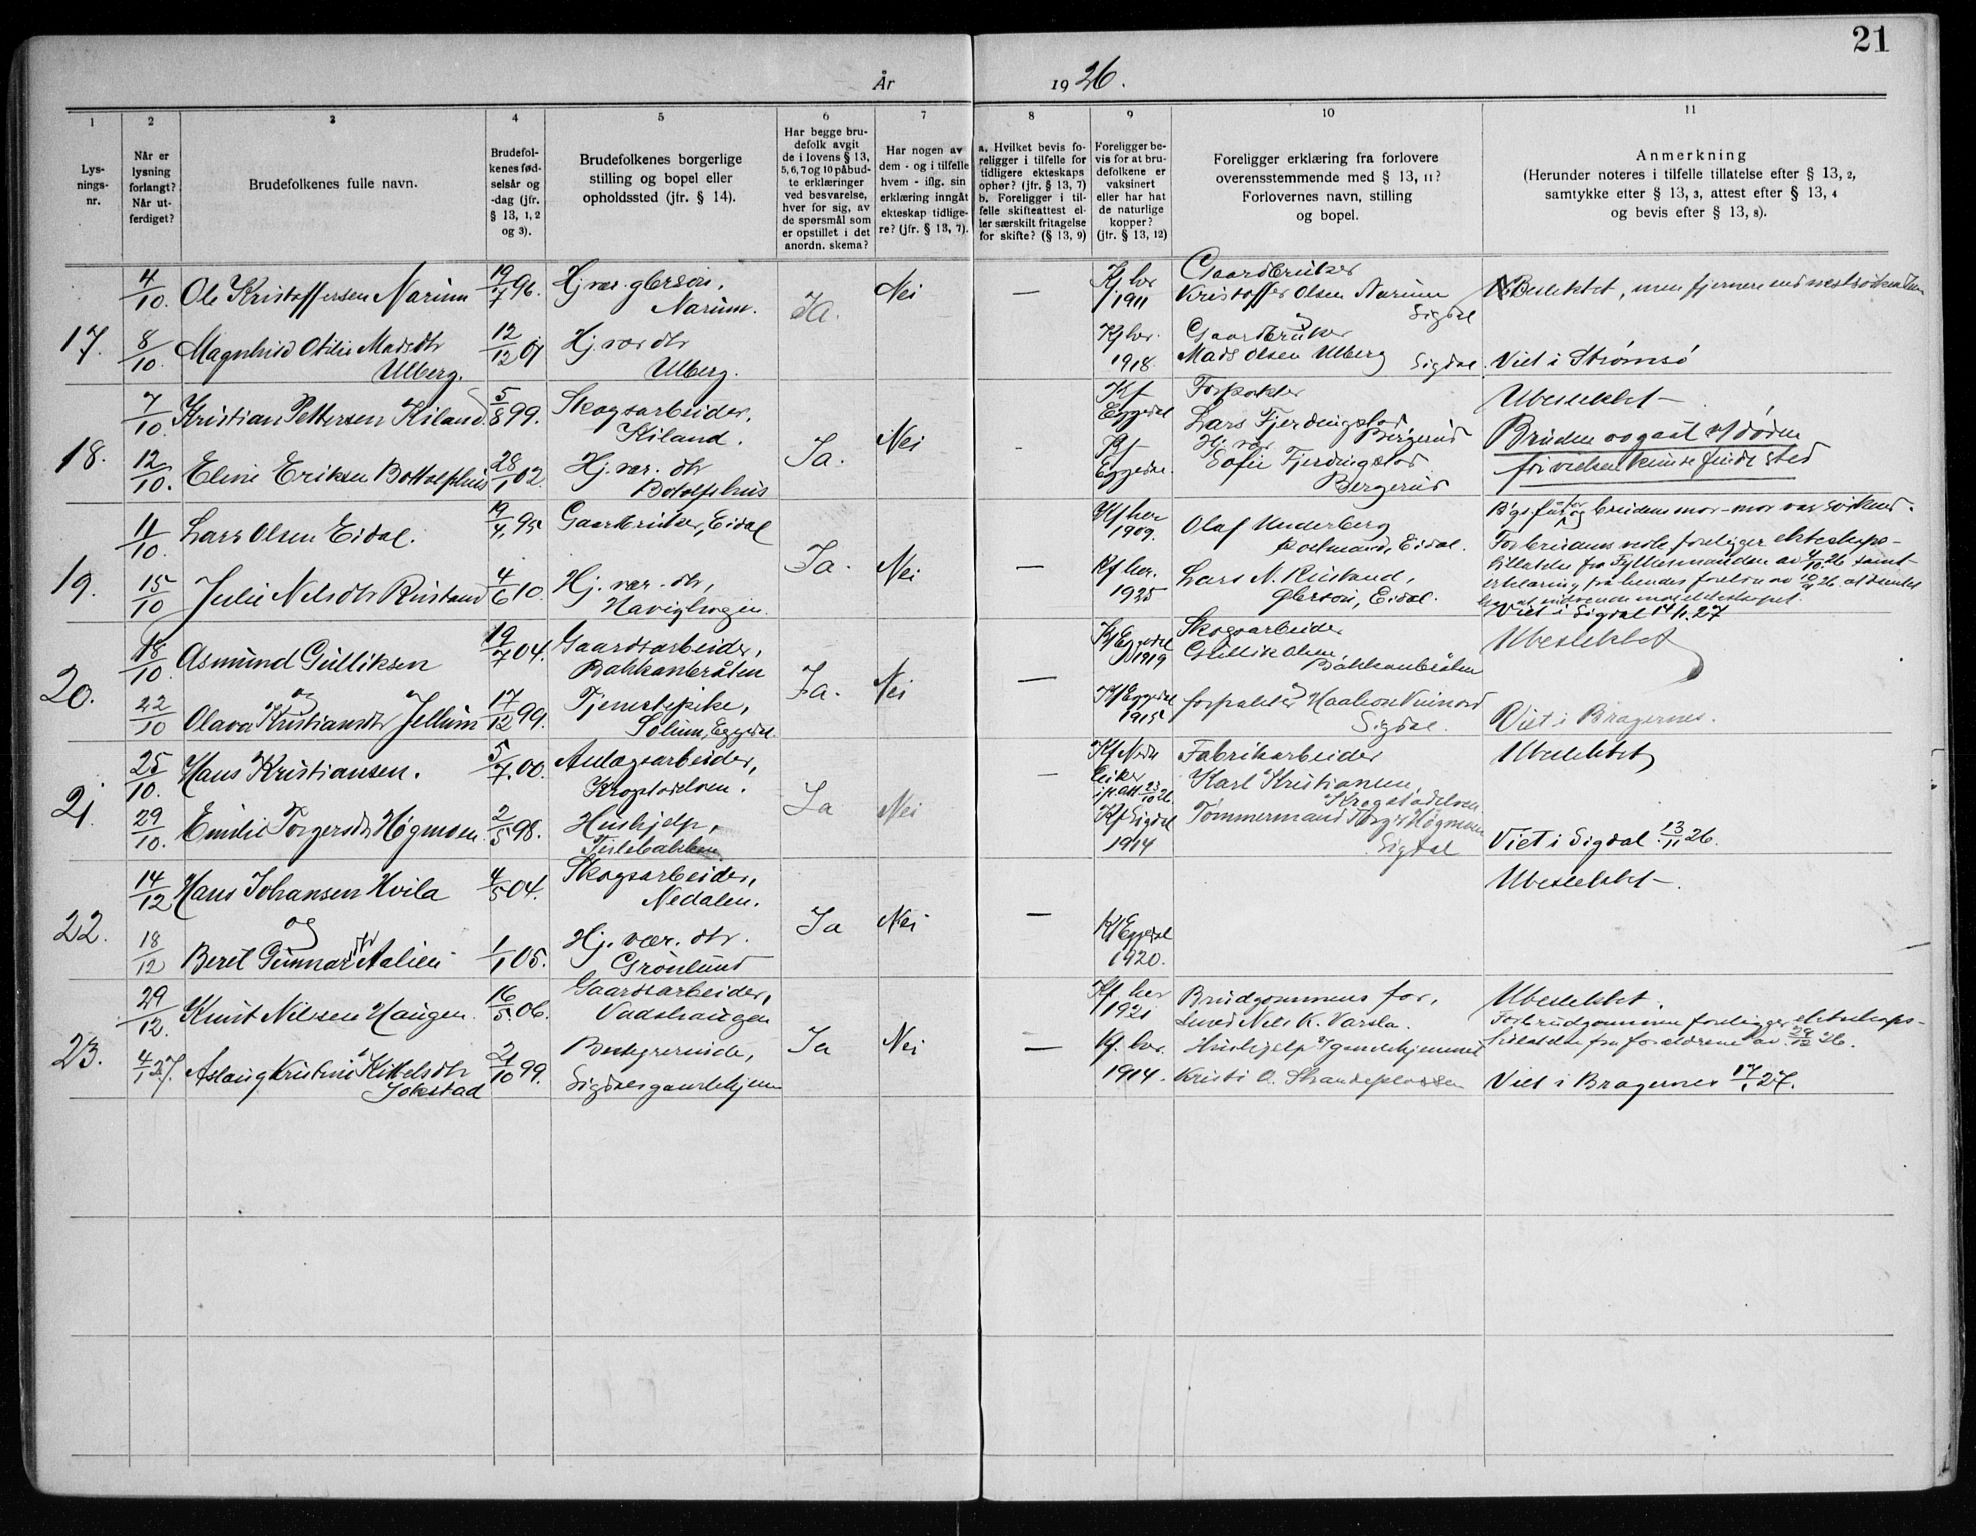 21
År 1926.
1 2 3 4 5 6 7 8 9 10 11
Lys-
nings-
nr.
Når er
lysning
forlangt?
Når ut-
ferdiget?
Brudefolkenes fulle navn.
Brudefol-
kenes fød-
selsår og
-dag (jfr.
§ 13, 1, 2
og 3).
Brudefolkenes borgerlige
stilling og bopel eller
opholdssted (jfr. § 14).
Har begge bru-
defolk avgit
de i lovens § 13,
5, 6, 7 og 10 påbud-
te erklæringer
ved besvarelse,
hver for sig, av
de spørsmål som
er opstillet i det
anordn. skema?
Har nogen av
dem - og i tilfelle
hvem - iflg. sin
erklæring inngåt
ekteskap tidlige-
re? (jfr. § 13, 7).
a. Hvilket bevis fo-
religger i tilfelle for
tidligere ekteskaps
ophør? (jfr. § 13, 7)
b. Foreligger i til-
felle skifteattest el-
ler særskilt fritagelse
for skifte? (§ 13, 9)
Foreligger be-
vis for at bru-
defolkene er
vaksinert
eller har hat
de naturlige
kopper?
(jfr. § 13, 12)
Foreligger erklæring fra forlovere
overensstemmende med § 13, 11?
Forlovernes navn, stilling
og bopel.
Anmerkning
(Herunder noteres i tilfelle tillatelse efter § 13, 2,
samtykke efter § 13, 3, attest efter § 13, 4
og bevis efter § 13, 8).
17.
4/10
Ole Kristoffersen Narum
19/7 96.
Hj. vær. gbrsøn,
Narum.
Ja.
Nei
—
Kf her
1911
Gaardbruker
Kristoffer Olsen Narum
Sigdal
Beslektet, men fjernere end
8/10.
Magnhild Otilie Madsdtr
Ulberg.
12/12 01
Hj. vær dtr
Ulberg.
Kf her.
1918.
Gaardbruker
Mads Olsen Ulberg Sigdal
Viet i Strømsø
18.
7/10.
Kristian Pettersen Kiland.
5/8 99.
Skogsarbeider,
Kiland.
Ja.
Nei
Kf
Eggedal
Forpakter
Lars Fjerdingstad
Bergerud
Ubeslektet
12/10.
Eline Eriksen Bottolfshus
28/1 02.
Hj. vær. dtr
Botolfshus
Kf
Eggedal
Hj. vær
Sofie Fjerdingstad
Bergerud
Bruden avgaat v/ døden
før vielsen kunde finde sted
19.
11/10
Lars Olsen Eidal.
19/4 95
Gaardbruker, Eidal
Ja.
Nei
—
Kf her
1909.
Olaf Underberg
Eidal.
Bgs. far og brudens mor-mor var søskend.
15/10
Julie Nelsdtr Rustand
4/6 10.
Hj. vær. dtr,
Kf her.
1925
Lars N. Rustand,
Gbrsøn, Eidal.
For bruden foreligger ekteskaps-
tillatelse fra Fylkesmanden av 4/10 26 samt
erklæring fra hendes foreldre av
Viet i Sigdal 14/1. 27
20.
18/10.
Asmund Gulliksen
og
19/7 04.
Gaardsarbeider,
Bakkanbråten
Ja.
Nei
—
Kf Eggedal
1919
Skogsarbeider
Gullik Olsen,
Bakkanbråten
Ubeslektet
22/10
Olava Kristiansdtr Jellum
17/12 99.
Tjenestepike,
Solum, Eggedal.
Kf Eggedal
1915
forpakter Haakon
Sigdal.
Viet i Bragernes.
21.
25/10.
Hans Kristiansen.
5/7. 00.
Anlægsarbeider,
Krogstadelven.
Ja
Nei
—
Kf Nedr
Eiker
Fabrikarbeider
Karl Kristiansen,
Krogstadelven
Ubeslektet
29/10.
Emilie Torgersdtr Høgmoen
2/5 98.
Hushjelp,
Kf Sigdal
1914
Tømmermand Torger Høgmoen
Sigdal
Viet i Sigdal 13/11 26.
22.
14/12
Hans Johansen Hvila
og
4/5 04.
Skogsarbeider,
Nedalen.
Ja
Nei
—
Ubeslektet
18/12
Beret Gunnarsdtr Aalien
1/1 05.
Hj. vær. dtr.
Grønlund
Kf Eggedal
1920.
23.
29/12.
Knut Nilsen Haugen.
16/5. 06.
Gaardsarbeider,
Vadshaugen
Ja
Nei
—
Kf. her
1921
Brudgommens far,
Smed Nels K. Varsla.
Ubeslektet.
For brudgommen foreligger ekteskaps-
tillatelse fra foreldrene av 29/12 26.
4/1 27.
Aslaug Kristine Kittelsdtr
Jokstad
21/10 99.
Bestyrerinde,
Sigdals gamlehjem
Kf. her.
1914.
Hushjelp v/ gamlehjemmet
Kristi O. Strandeplassen
Viet i Bragernes 17/1 27.